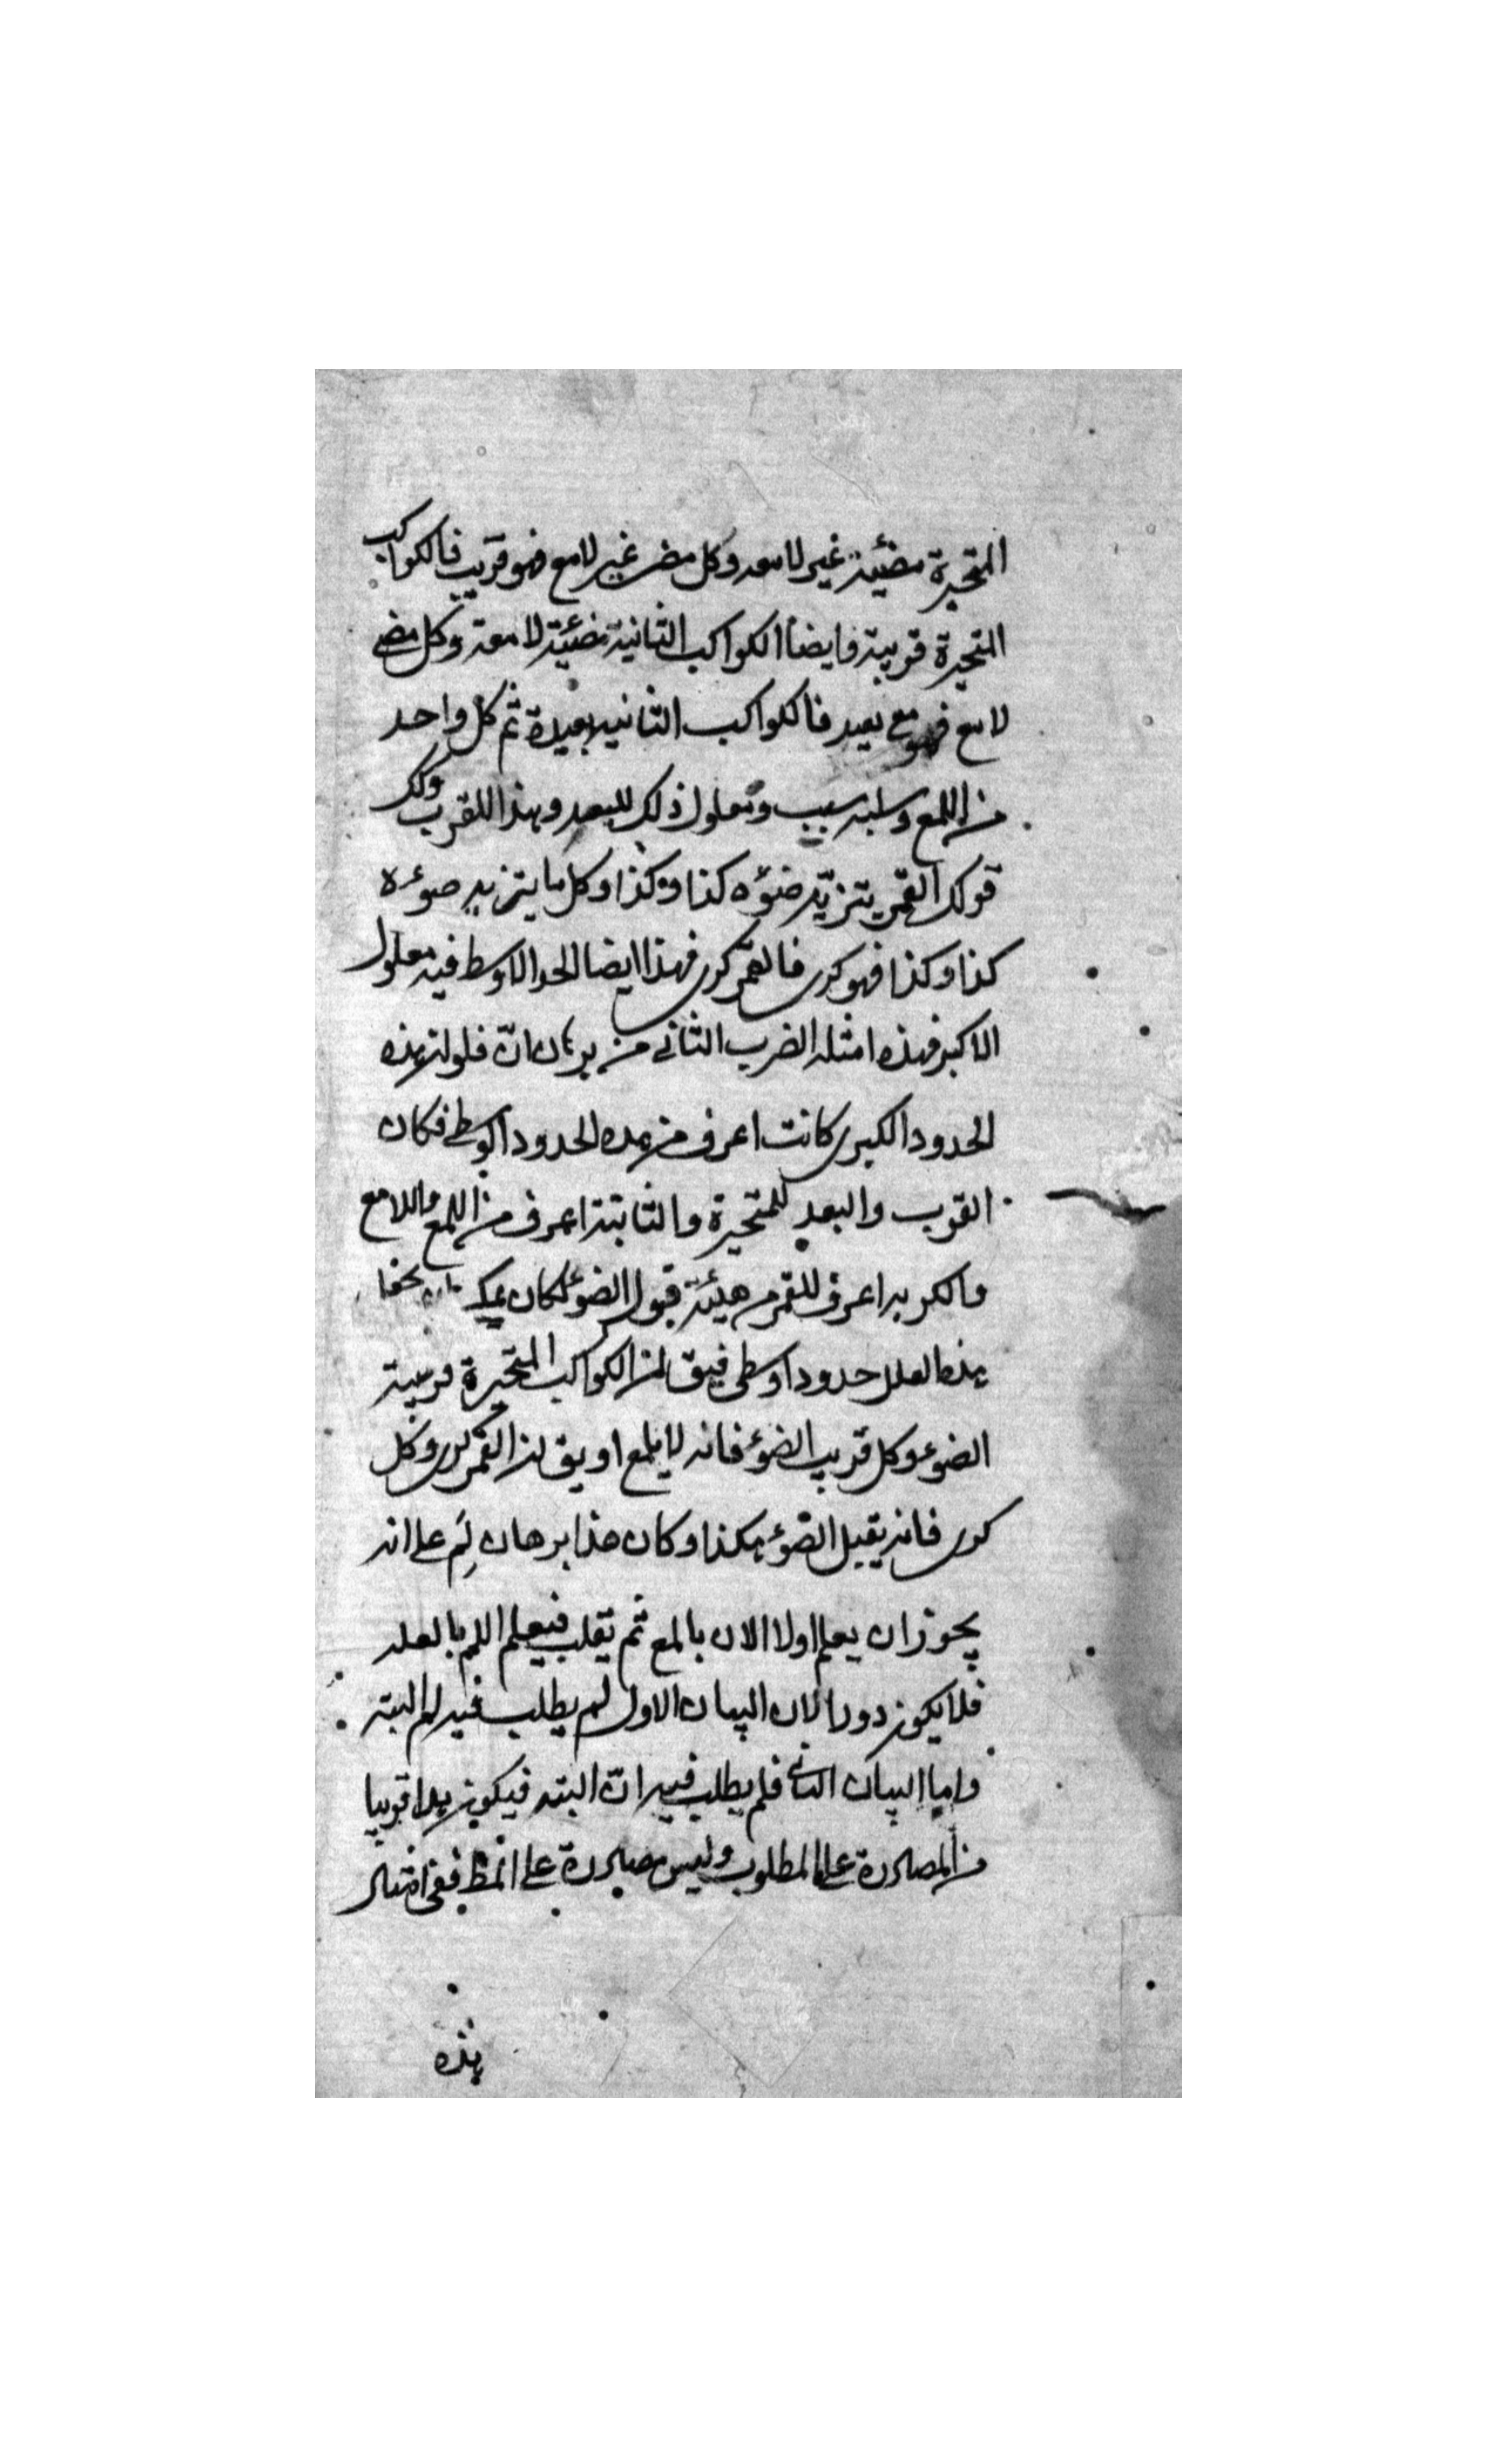 المتحيرة مضيئة غير لامعه وكل مضئ غير لامع فهو قريب فالكواكب
المتحيرة قريبة فايضا الكواكب الثانية مضيئة لامعة وكل مضئ
لامع فهو مع بعيد فالكواكب الثانيه بعيدة ثم كل واحد
من اللمع وسلبه سبب ومعلول ذلك للبعد وهذا للقرب وكك
قولك القمر يتزيد ضوءه كذا وكذا وكل ما يتزيد ضوءه
كذا وكذا فهو كرى فالقمر كرى فهذا ايضا الحد الاوسط فيه معلول
الاكبر فهذه امثلة الضرب الثانى من برهان انّ فلو ان هذه
الحدود الكبرى كانت اعرف من هذه الحدود الوسطى فكان
القرب والبعد للمتحيرة والثابتة اعرف من اللمع واللامع
والكريه اعرف للقمر من هيئة قبول الضوء لكان يمكن
هذه العلل حدودا وسطى فيق ان الكواكب المتحيرة قريبة
الضوء وكل قريب الضوء فانه لا يلمع او يق ان القمر كرى وكل
كرى فانه يقبل الضوء هكذا وكان هذا برهان لِم على انه
يجوز ان يعلم اولا الان بالمع ثم يقلب فيعلم اللم بالعله
فلا يكون دورا لان البيان الاول لم يطلب فيه لم البته
واما البيان الثانى فلم يطلب فيه انّ البته فيكون هذا قريبا
من المصادرة على المطلوب وليس مصادرة على المط ففى امثله
هذه